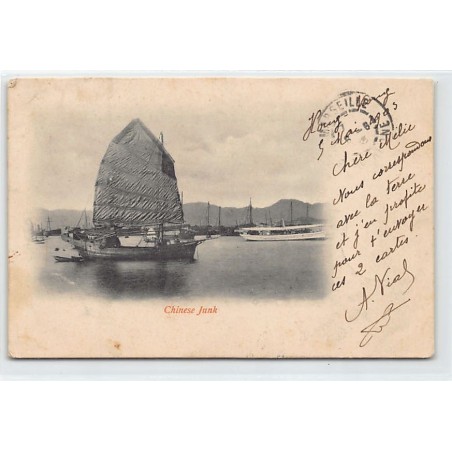 Hong Kong
5 Mai 1903
MARSEILLE
Chère Mélie
Nous correspondons
avec la terre
et j'en profite
pour t'envoyer
ces 2 cartes.
A. Vial
Chinese Junk